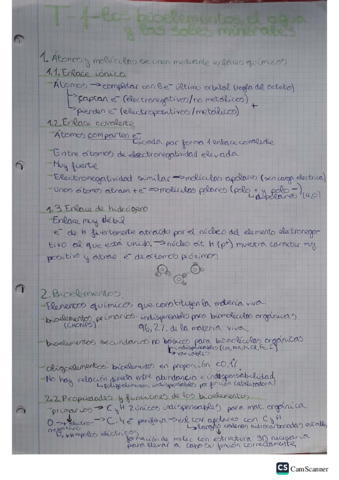 T-1-Los bioelementos, el agua
y las sales minerales
1. Átomos y moléculas se unen mediante enlaces químicos
1.1. Enlace iónico
- Átomos → completar con 8e⁻ último orbital (regla del octeto)
captan e⁻ (electronegativos/no metálicos)
+
pierden e⁻ (electropositivos/metálicos)
1.2. Enlace covalente
- Átomos comparten e⁻
cada par forma 1 enlace covalente
- Entre átomos de electronegatividad elevada
- Muy fuerte
- Electronegatividad similar → moléculas apolares (sin carga eléctrica)
- Unos átomos atraen + e⁻ → moléculas polares (polo + y polo -)
dipolares (H₂O)
1.3. Enlace de hidrógeno
- Enlace muy débil
e⁻ de H fuertemente atraído por el núcleo del elemento electronega-
tivo al que está unido → núcleo del H (p⁺) muestra caracter muy
positivo y atrae e⁻ de átomos próximos
2. Bioelementos
- Elementos químicos que constituyen la materia viva
- bioelementos primarios - indispensables para biomoléculas orgánicas
(CHONPS)
96,2% de la materia viva
- bioelementos secundarios no básicos para biomoléculas orgánicas
indispensables
variables
- oligoelementos: bioelementos en proporción <0,1%
- No hay relación directa entre abundancia e indispensabilidad
oligoelementos indispensables por función catalizadora
2.2. Propiedades y funciones de los bioelementos
- primarios → C y H únicos indispensables para mat. orgánica
O → → C, 4e⁻ periferia → col. con enlaces con C y H
negativo